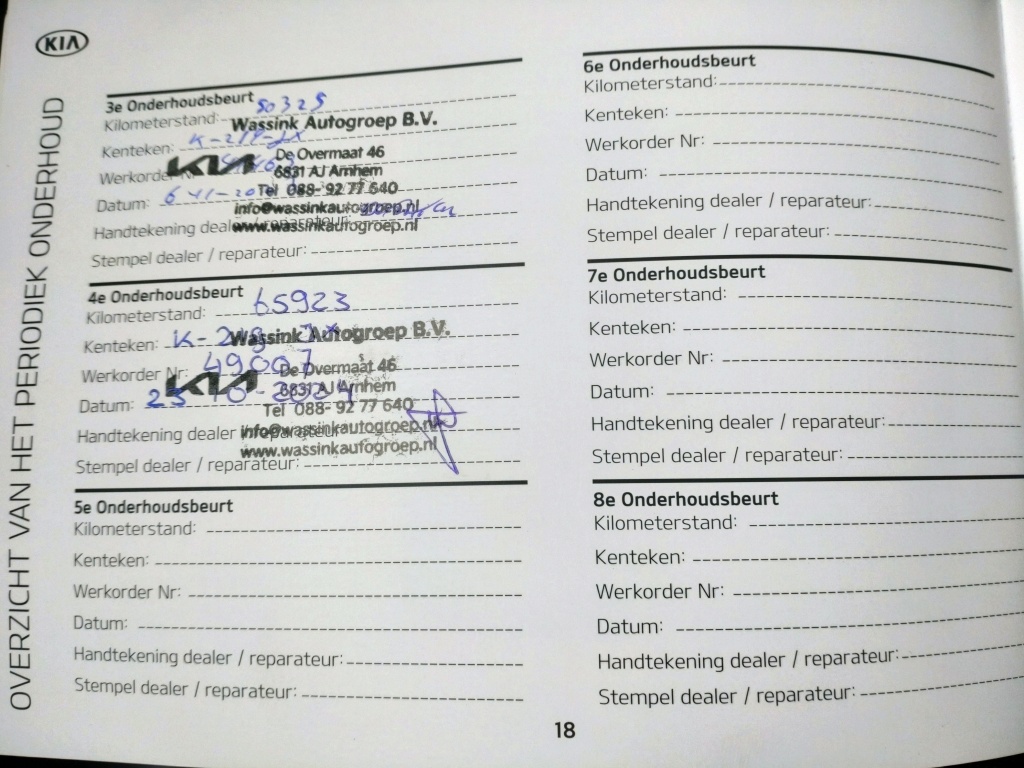 KIA
OVERZICHT VAN HET PERIODIEK ONDERHOUD
3e Onderhoudsbeurt
Kilometerstand: 50325
Kenteken:
Werkorder Nr:
Datum: 6
Handtekening dealer / reparateur:
Stempel dealer / reparateur:
Wassink Autogroep B.V.
KIA
De Overmaat 46
6831 AJ Arnhem
Tel 088- 92 77 640
info@wassinkautogroep.nl
www.wassinkautogroep.nl
4e Onderhoudsbeurt
Kilometerstand: 65923
Kenteken:
Werkorder Nr: 49007
Datum:
Handtekening dealer / reparateur:
Stempel dealer / reparateur:
Wassink Autogroep B.V.
KIA
De Overmaat 46
6831 AJ Arnhem
Tel 088- 92 77 640
info@wassinkautogroep.nl
www.wassinkautogroep.nl
5e Onderhoudsbeurt
Kilometerstand:
Kenteken:
Werkorder Nr:
Datum:
Handtekening dealer / reparateur:
Stempel dealer / reparateur:
6e Onderhoudsbeurt
Kilometerstand:
Kenteken:
Werkorder Nr:
Datum:
Handtekening dealer / reparateur:
Stempel dealer / reparateur:
7e Onderhoudsbeurt
Kilometerstand:
Kenteken:
Werkorder Nr:
Datum:
Handtekening dealer / reparateur:
Stempel dealer / reparateur:
8e Onderhoudsbeurt
Kilometerstand:
Kenteken:
Werkorder Nr:
Datum:
Handtekening dealer / reparateur:
Stempel dealer / reparateur:
18